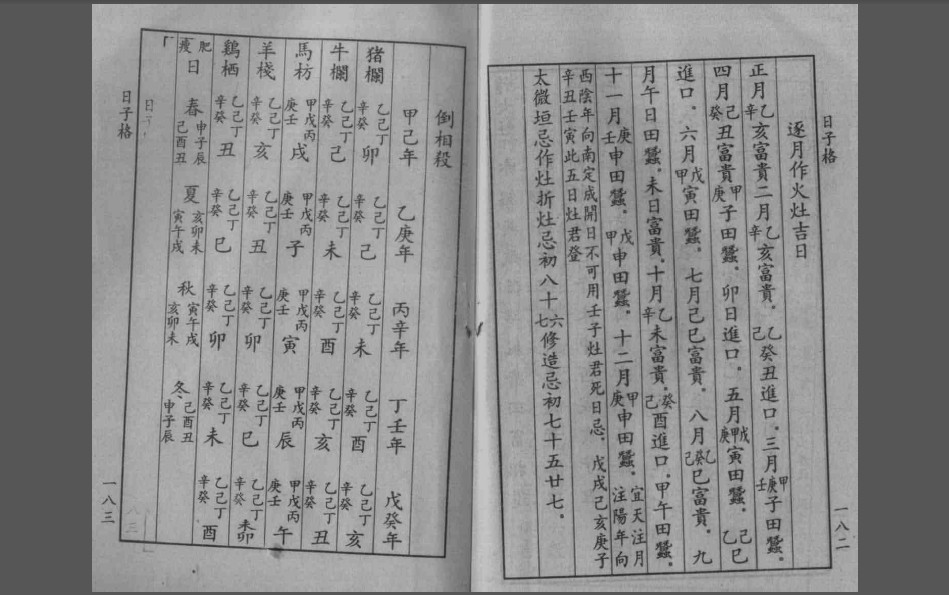 日子格
逐月作火灶吉日
正月乙辛亥富貴二月乙辛亥富貴。乙己癸丑進口。三月甲庚壬子田蠶。
四月己癸丑富貴甲庚子田蠶。卯日進口。五月甲戌庚寅田蠶。己乙巳
進口。六月戊甲寅田蠶。七月己巳富貴。八月乙癸己巳富貴。九
月午日田蠶。未日富貴。十月乙辛未富貴。癸己酉進口。甲午田蠶。宜天注月
十一月庚壬申田蠶。戊甲申田蠶。十二月甲庚申田蠶。注陽年向
酉陰年向南定成開日不可用壬子灶君死日忌。戊戌己亥庚子
辛丑壬寅此五日灶君登
太微垣忌作灶折灶忌初八十六七修造忌初七十五廿七。
一八二
倒相殺
甲己年 乙庚年 丙辛年 丁壬年 戊癸年
猪欄 乙己丁辛癸卯 乙己丁辛癸己 乙己丁辛癸未 乙己丁辛癸酉 乙己丁辛癸亥
牛欄 乙己丁辛癸己 乙己丁辛癸未 乙己丁辛癸酉 乙己丁辛癸亥 乙己丁辛癸丑
馬枋 甲戊丙庚壬戌 甲戊丙庚壬子 甲戊丙庚壬寅 甲戊丙庚壬辰 甲戊丙庚壬午
羊棧 乙己丁辛癸亥 乙己丁辛癸丑 乙己丁辛癸卯 乙己丁辛癸巳 乙己丁辛癸卯
鷄栖 乙己丁辛癸丑 乙己丁辛癸巳 乙己丁辛癸卯 乙己丁辛癸未 乙己丁辛癸酉
肥瘦日 春申子辰己酉丑 夏亥卯未寅午戌 秋寅午戌亥卯未 冬己酉丑申子辰
日子格
一八三